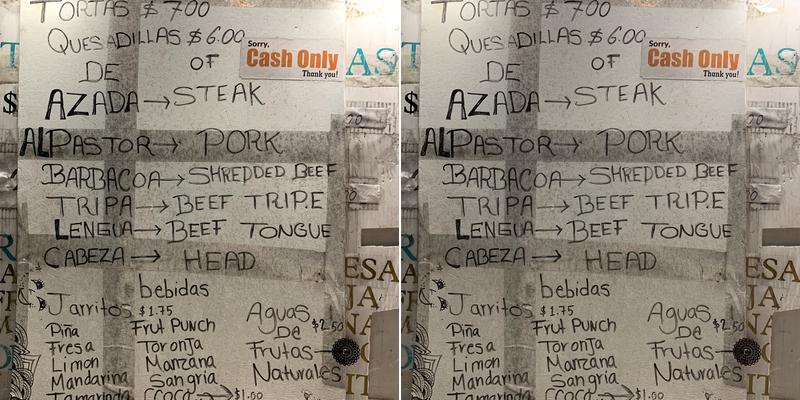 TORTAS $ 700
QUESADILLAS $ 6.00
Sorry,
Cash Only
Thank you!
DE OF
AZADA → STEAK
AL PASTOR → PORK
BARBACOA → SHREDDED BEEF
TRIPA → BEEF TRIPE
LENGUA → BEEF TONGUE
CABEZA → HEAD
bebidas
Jarritos $1.75
Piña
Fresa
Limon
Mandarina
Tamarinda
Frut Punch
Toronja
Manzana
Sangria
COCA → $1.00
Aguas
De $2.50
Frutas
Naturales
TORTAS $ 700
QUESADILLAS $ 6.00
Sorry,
Cash Only
Thank you!
DE OF
AZADA → STEAK
AL PASTOR → PORK
BARBACOA → SHREDDED BEEF
TRIPA → BEEF TRIPE
LENGUA → BEEF TONGUE
CABEZA → HEAD
bebidas
Jarritos $1.75
Piña
Fresa
Limon
Mandarina
Tamarinda
Frut Punch
Toronja
Manzana
Sangria
COCA → $1.00
Aguas
De $2.50
Frutas
Naturales